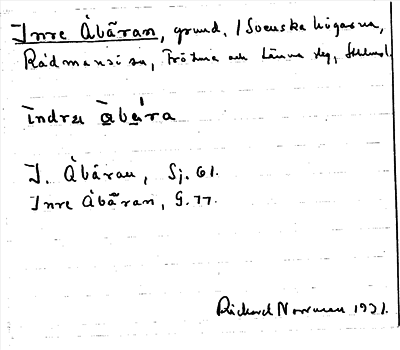 Inre Åbåran, grund, i Svenska högarna,
Rådmansö sn, Frötuna och Länna skg, Sthlms l.
ìndrɛ å̀bǻra
I. Åbåran, Sj. 61.
Inre Åbåran, G. 77.
Rickard Norrman 1931.